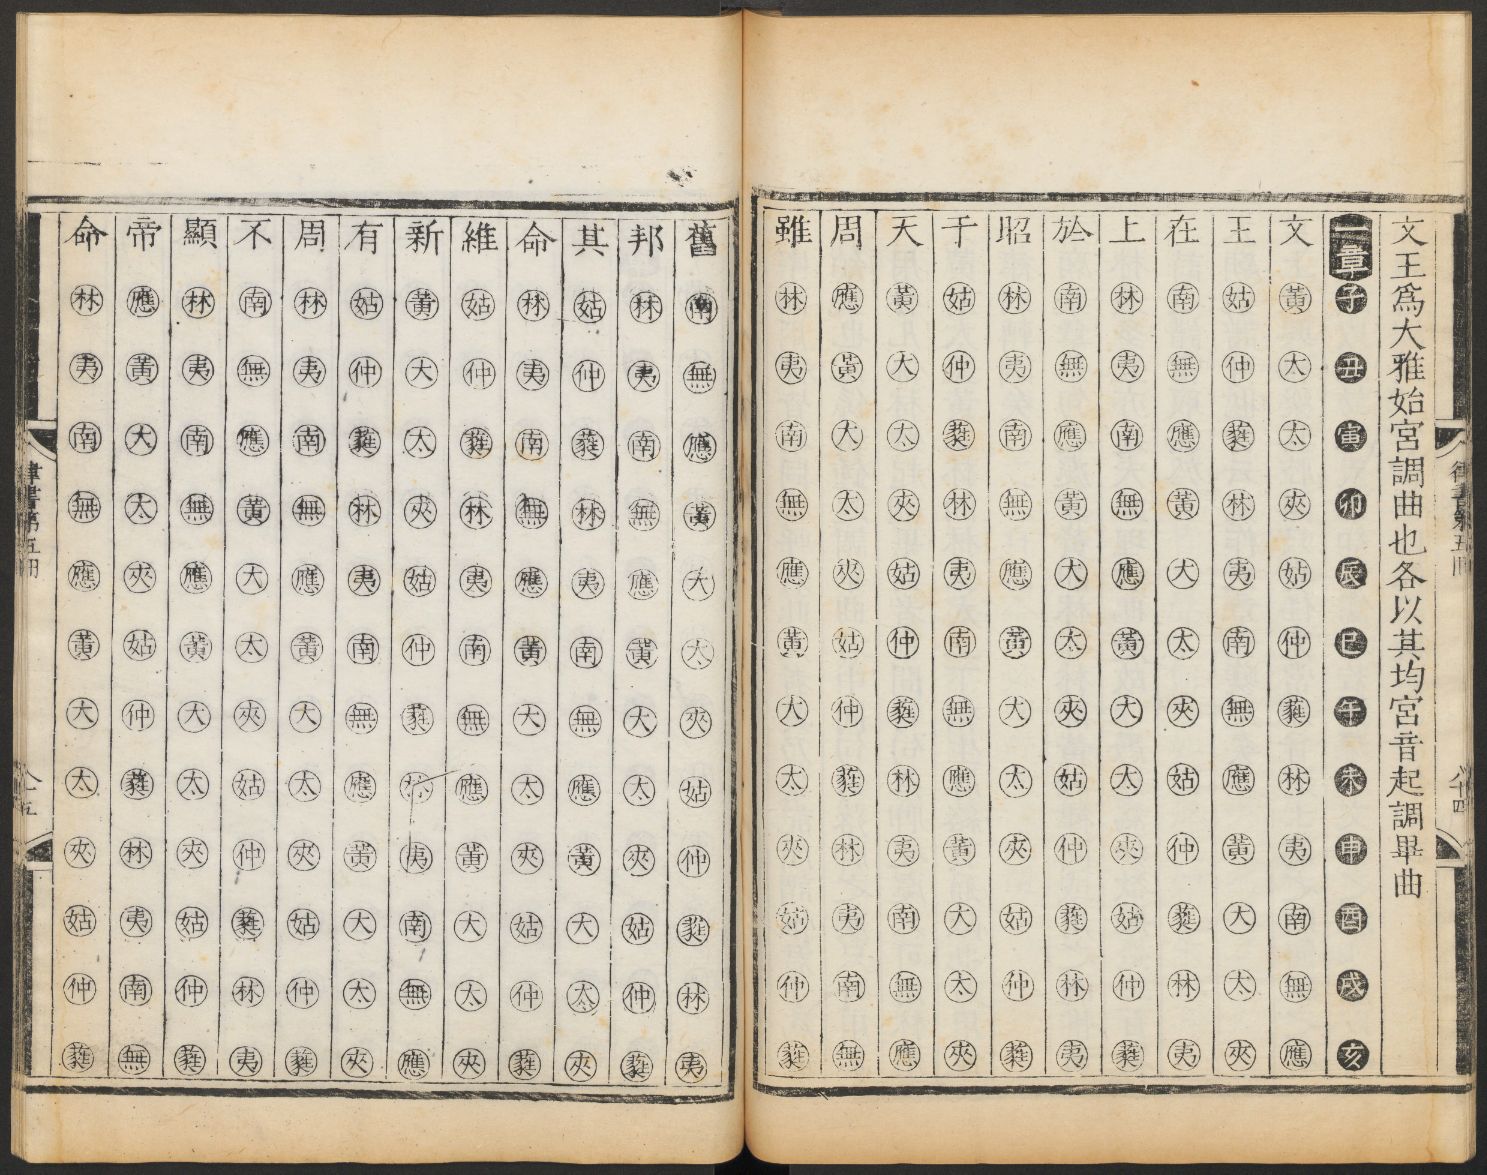 律書第五冊 八十四
文王爲大雅始宮調曲也各以其均宮音起調畢曲
一章子丑寅卯辰巳午未申酉戌亥
文黃太太夾姑仲蕤林夷南無應
王姑仲蕤林夷南無應黃大太夾
在南無應黃大太夾姑仲蕤林夷
上林夷南無應黃大太夾姑仲蕤
於南無應黃大太夾姑仲蕤林夷
昭林夷南無應黃大太夾姑仲蕤
于姑仲蕤林夷南無應黃大太夾
天黃大太夾姑仲蕤林夷南無應
周應黃大太夾姑仲蕤林夷南無
雖林夷南無應黃大太夾姑仲蕤
舊南無應黃大太夾姑仲蕤林夷
邦林夷南無應黃大太夾姑仲蕤
其姑仲蕤林夷南無應黃大太夾
命林夷南無應黃大太夾姑仲蕤
維姑仲蕤林夷南無應黃大太夾
新黃大太夾姑仲蕤林夷南無應
有姑仲蕤林夷南無應黃大太夾
周林夷南無應黃大太夾姑仲蕤
不南無應黃大太夾姑仲蕤林夷
顯林夷南無應黃大太夾姑仲蕤
帝應黃大太夾姑仲蕤林夷南無
命林夷南無應黃大太夾姑仲蕤
律書第五冊 八十五